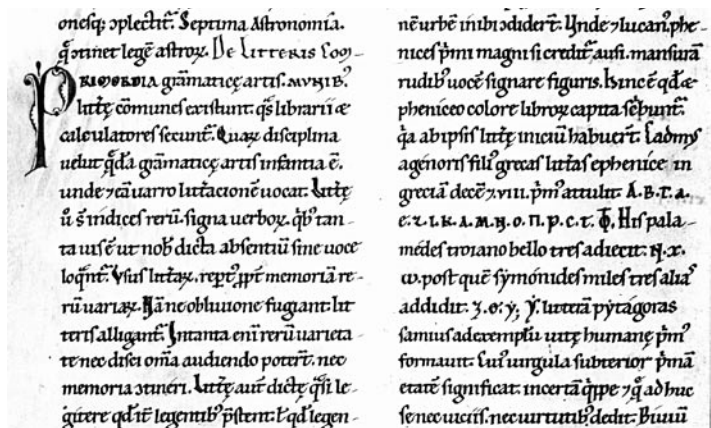 onesq; ↄplectit̄. Septima Astronomia.
q̄ ↄtinet legē astroꝝ. De Litteris Com
PRIMORDIA grāmaticę artis. MVNIBꝰ.
litt̄ę cōmunes existunt. q̄s librarii &
calculatores secunt̄. Quaꝝ disciplina
uelut q̄da grāmaticę artis infantia ē.
unde ⁊ eā uarro litt̄acionē uocat. Litt̄ę
ů s̄ indices rerū. signa uerboꝝ. q̄bꝰ tan-
ta uis ē ut nob̄ dicta absentiū sine uoce
loq̄nt̄. Vsus litt̄aꝝ. rept̄ꝰ ꝓpt̄ memoriā re-
rū uariaꝝ. Nā ne obliuione fugiant: lit
teris alligant̄. In tanta enī rerū uarieta
te nec disci om̄a audiendo poter̄t. nec
memoria ↄtineri. Litt̄ę aut̄ dictę q̄si le-
gitere qd̄ it̄ legentibꝰ p̄stent: ł qd̄ legen-
nē urbē inibi ↄdider̄t. Unde ⁊ lucanꝰ. phe-
nices p̄mi magni si credit̄. ausi. mansurā
rudibꝰ uocē signare figuris. Hinc ē qd̄ &
pheniceo colore libroꝝ capita sc̄bunt̄.
q̄a ab ipsis litt̄ę iniciū habuer̄t. Cadmꝰ
agenoris filiꝰ grecas litt̄as e phenice in
greciā decē ⁊ .viii. p̄mꝰ attulit. Α.Β.Γ.Δ.
ε.ζ.Ι.Κ.Λ.Μ.Ν.Ο.Π.Ρ.C.Τ.Φ. His pala-
medes troiano bello tres adiecit. H.X.
ω. post quē symónides miles tres aliaꝰ
addidit. Ȝ.Θ.Ψ. Ỳ. litterā pytágoras
samius ad exemplū uitę humanę p̄mꝰ
formauit. Cuiꝰ uirgula subterior p̄mā
etatē significat. incertā q̄ppe ⁊ q̄ adhuc
se nec uiciis. nec uirtutibꝰ dedit. Biuiū